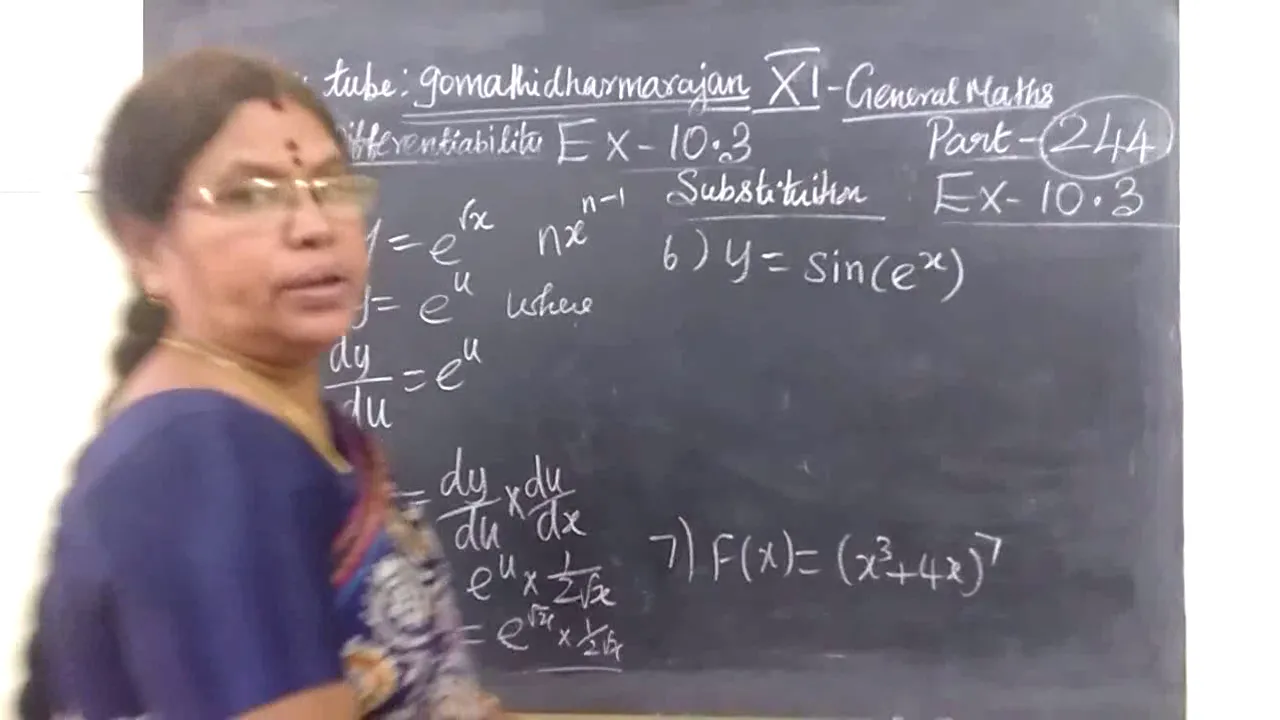 tube: gomathidharmarajan XI - General Maths
Differentiability Ex - 10.3 Part - 244
Substituition Ex - 10.3
y = e^√x nx^(n-1)
y = e^u where
dy/du = e^u
= dy/du × du/dx
e^u × 1/2√x
= e^√x × 1/2√x
6) y = sin(e^x)
7) F(x) = (x³+4x)^7